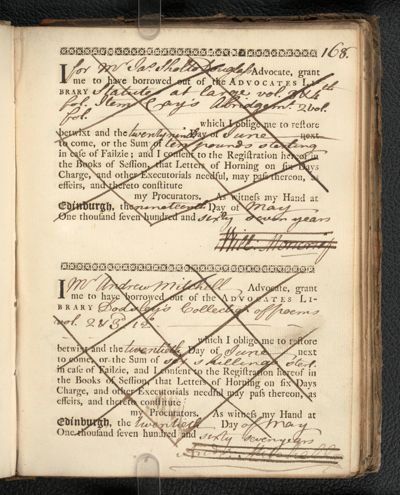 168.
I for Mr Jas Sholto Douglas Advocate, grant
me to have borrowed out of the ADVOCATES LI-
BRARY Statutes at large vol. 3 & 4th
fol. Item Cay's Abridgmt. 2 vol.
fol.
which I oblige me to restore
betwixt and the twenty ninth Day of June next
to come, or the Sum of ten pounds sterling
in case of Failzie; and I consent to the Registration hereof in
the Books of Session, that Letters of Horning on six Days
Charge, and other Executorials needful, may pass thereon, as
effeirs, and thereto constitute
my Procurators. As witness my Hand at
Edinburgh, the nineteenth Day of May
One thousand seven hundred and sixty seven years
Will.
I Mr Andrew Mitchell Advocate, grant
me to have borrowed out of the ADVOCATES LI-
BRARY Dodsley's Collection of poems
vol. 2 & 3d 12o
which I oblige me to restore
betwixt and the twentieth Day of June next
to come, or the Sum of six shillings ster.
in case of Failzie, and I consent to the Registration hereof in
the Books of Session, that Letters of Horning on six Days
Charge, and other Executorials needful may pass thereon, as
effeirs, and thereto constitute
my Procurators. As witness my Hand at
Edinburgh, the twentieth Day of May
One thousand seven hundred and sixty seven years